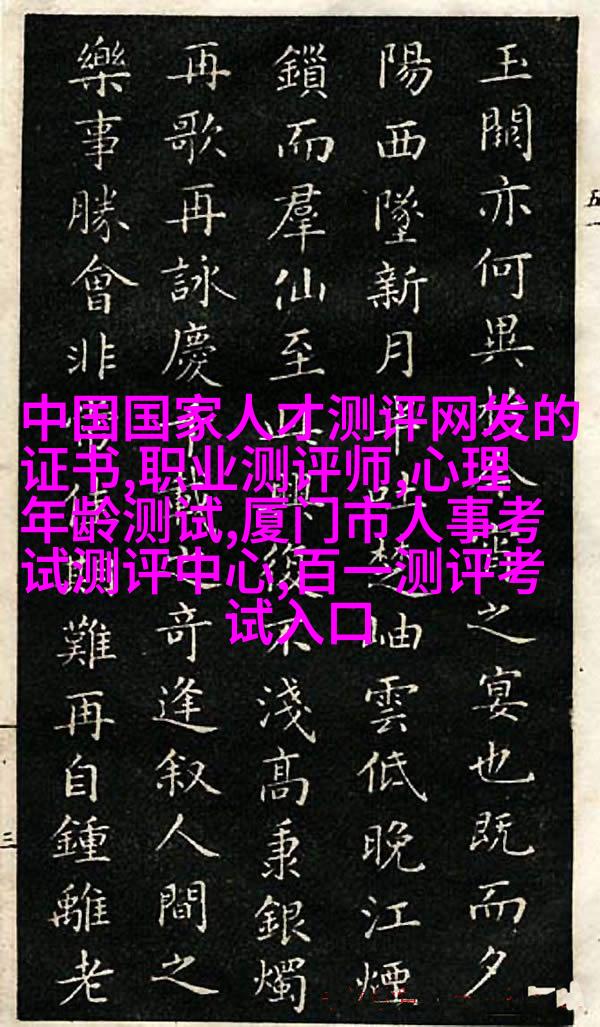 中国国家人才测评网发的
证书,职业测评师,心理
年龄测试,厦门市人事考
试测评中心,百一测评考
试入口
玉闕亦何異之宴也既而夕
陽西墜新月半吐楚岫雲低晚江煙
鎖而羣仙至興復不淺高秉銀燭
再歌再詠慶之奇逢叙人間之
樂事勝會非難再自鍾離老